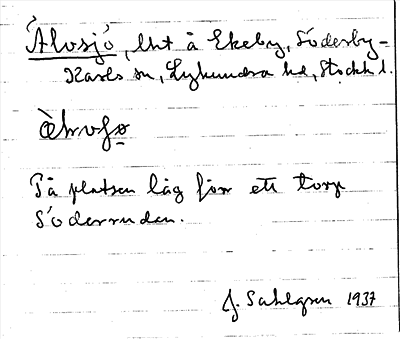 Álvsjö, lht å Ekeby, Söderby-
Karls sn, Lyhundra hd, Stockh. l.
På platsen låg förr ett torp
Söderrudan.
J. Sahlgren 1937